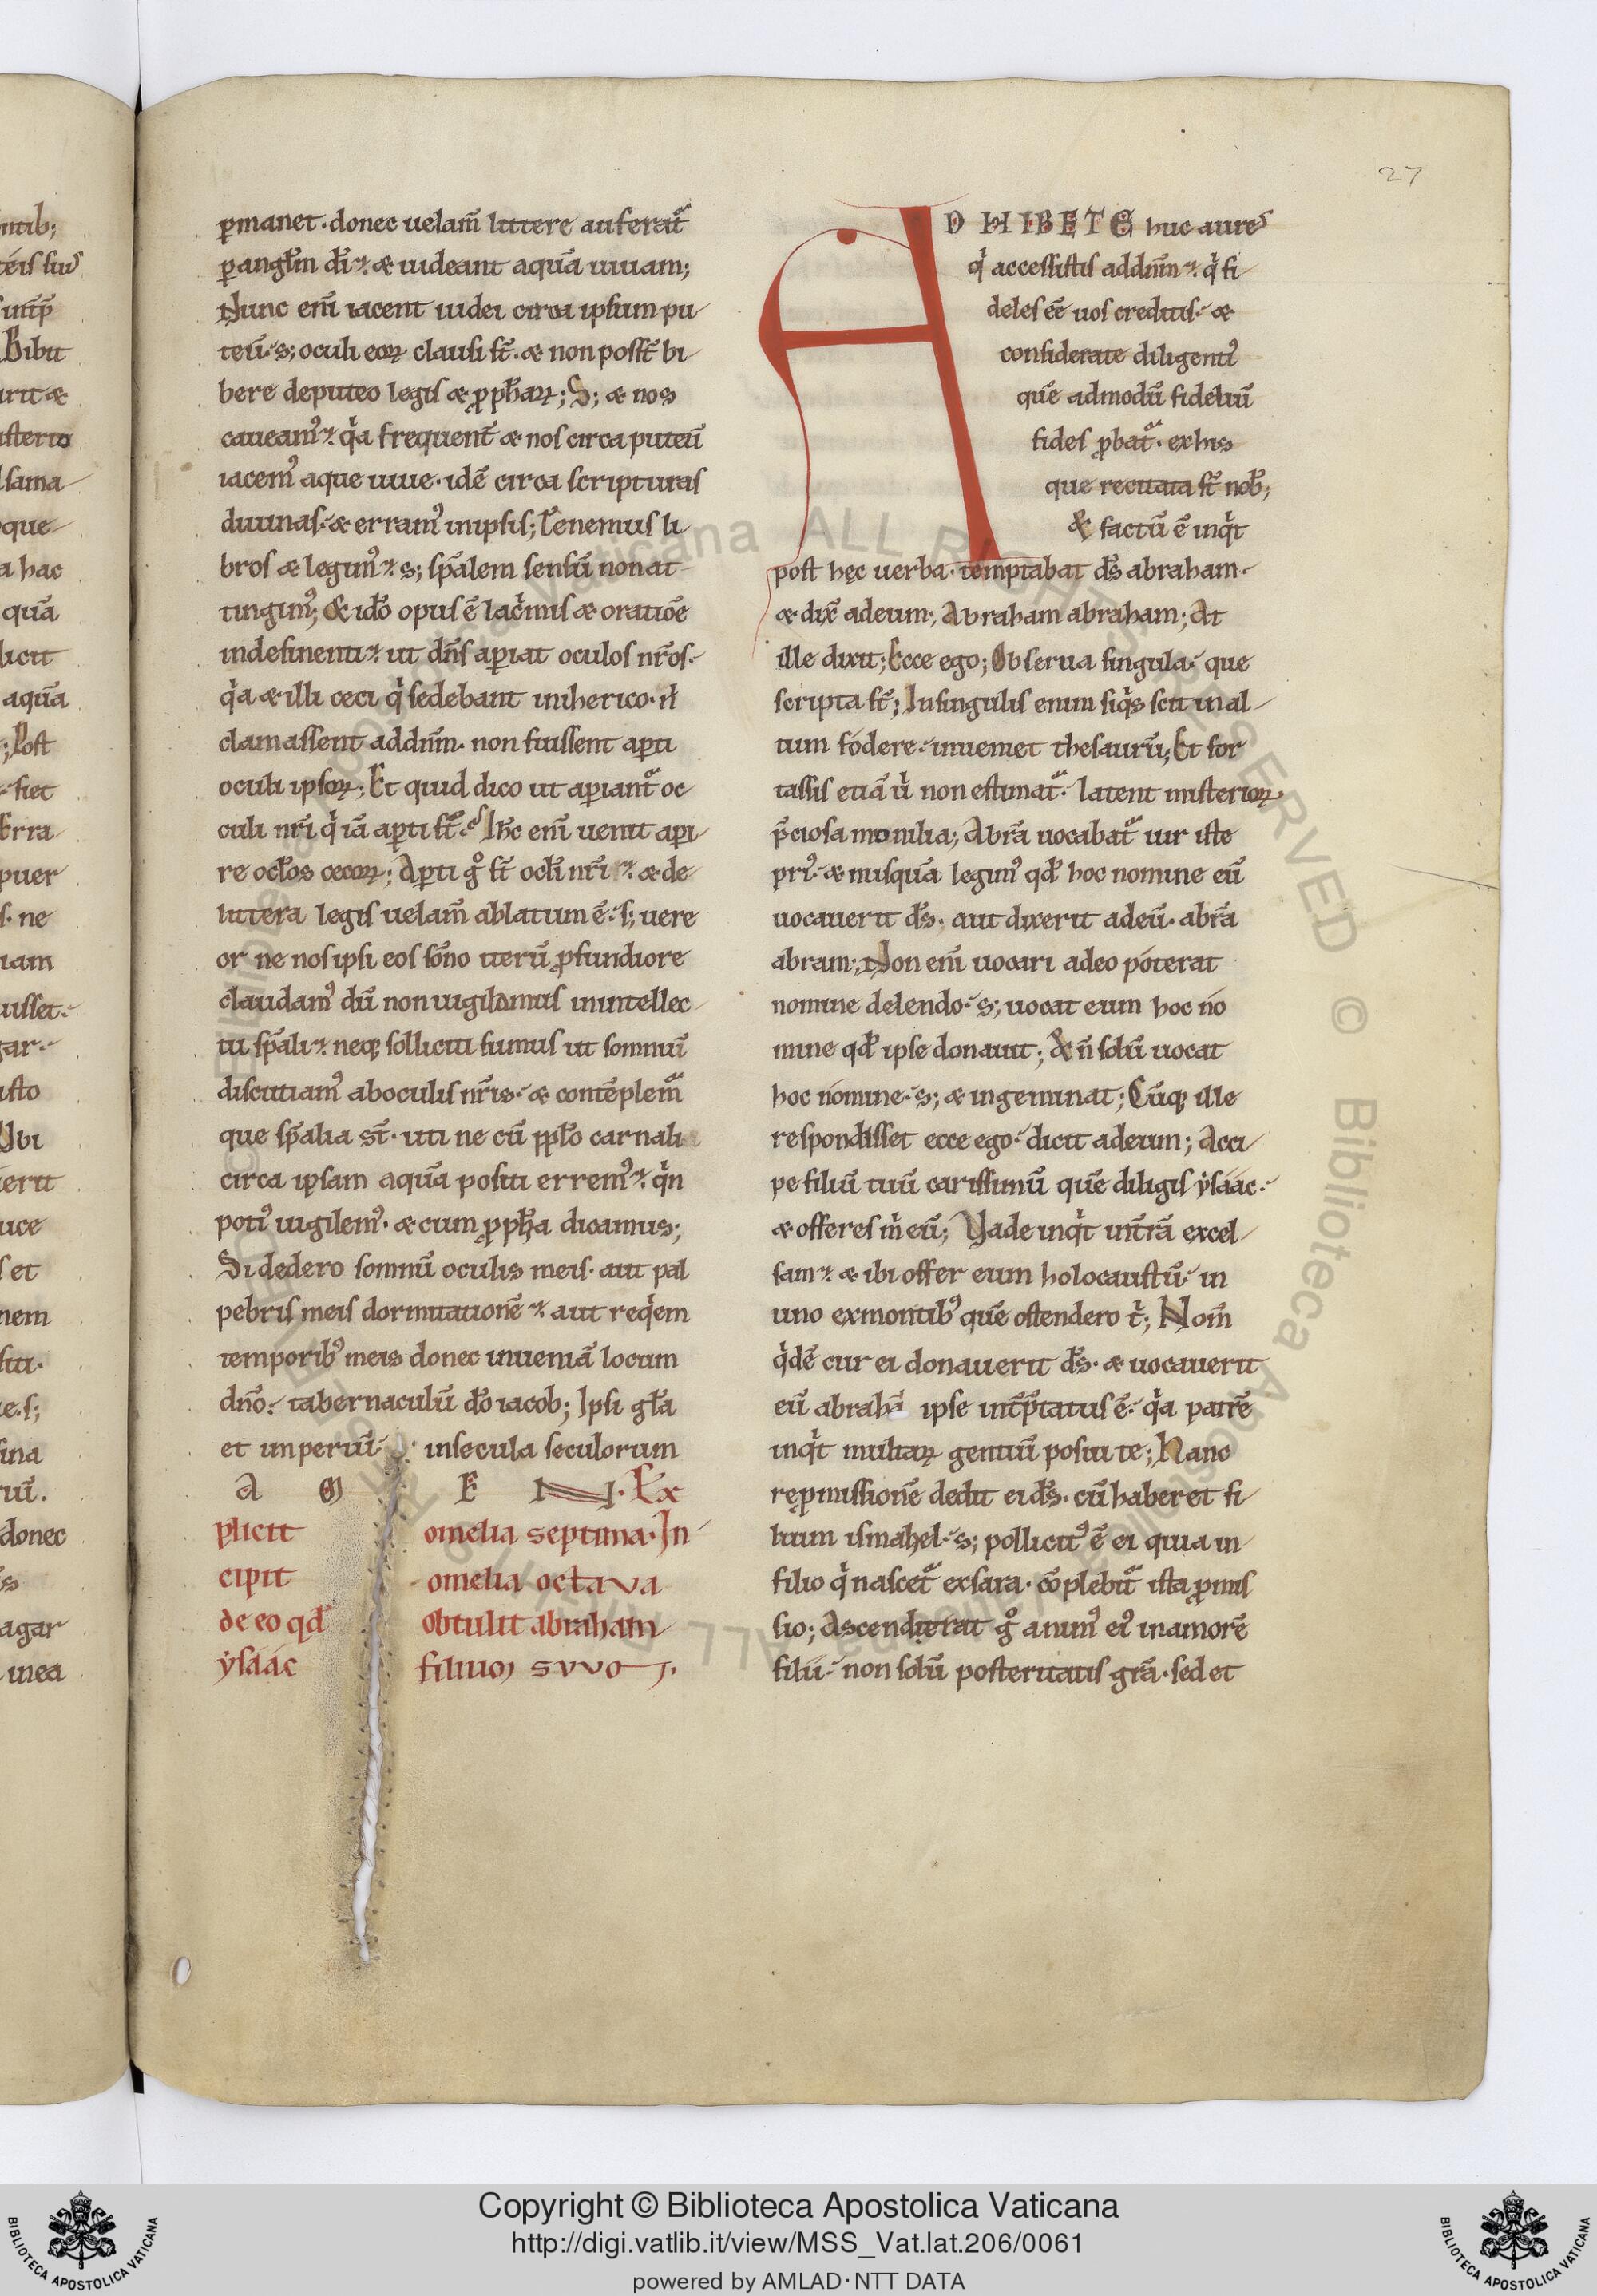 27
ntib;
teis suis
int̄p̄
Bibit
urit æ
isterio
sama
que
a hac
quā
licit
aquā
; Post
fiet
Erra
puer
s. ne
iam
uisset.
gar.
isto
Vbi
ierit
uce
s et
nem
siti.
e.s;
sina
rui͞.
donec
s
agar
inea
p̱manet. donec uelam̄ littere auferat᷑
p̱ angl̄m dī. æ uideant aquā uiuam;
Nunc enī iacent iudei circa ipsum pu
teū. s; oculi eoꝝ clausi st̄. æ non poss̄t bi
bere de puteo legis æ ꝓph̄aꝝ; S; æ nos
caueamꝰ. q̇a frequent̄ æ nos circa puteū
iacemꝰ aque uiue. idē circa scripturas
diuinas. æ erramꝰ in ipsis; Tenemus li
bros æ legimꝰ. s; sp̄alem sensū non at
tingimꝰ; & id̄o opus ē lac̓mis æ oratiōe
indesinenti. ut dn̄s ap̱iat oculos nr̄os.
q̇a æ illi ceci q̇ sedebant in iherico. n̄
clamassent ad dn̄m. non fuissent ap̱ti
oculi ipsoꝝ; Et quid dico ut ap̱iant᷑ oc
culi nr̄i q̇ iā ap̱ti st̄. Ih̄c enī uenit ap̱i
re ocl̄os cecoꝝ; Ap̱ti g̊ st̄ ocl̄i nr̄i. æ de
littera legis uelam̄ ablatum ē. s; uere
or ne nos ipsi eos sōno iterū ꝓfundiore
claudamꝰ dū non uigilamus in intellec
tu sp̄ali. neq; solliciti sumus ut somnū
discutiamꝰ ab oculis nr̄is. æ contēplem᷑
que sp̄alia st̄. uti ne cū pp̱l̄o carnali
circa ipsam aquā positi erremꝰ. q̇n
potiꝰ uigilemꝰ. æ cum ꝓph̄a dicamus;
Si dedero somnū oculis meis. aut pal
pebris meis dormitationē. aut req̇em
temporibꝰ meis donec inueniā locum
dn̄o. tabernaculū d̄o iacob; Ipsi gl̄a
et imperiū. in secula seculorum
A M E N. Ex
plicit omelia septima. In
cipit omelia octava
de eo qd̄ obtulit abraham
ẏsáác filium svvm.
ADHIBETE huc aures
q̇ accessistis ad dn̄m. q̇ fi
deles eē uos creditis. æ
considerate diligentī
quē admodū fideliū
fides ꝓbat᷑. ex his
que recitata st̄ nob̄;
& factū ē inq̇t
post hęc uerba. temptabat d̄s abraham.
æ dix̄ ad eum; Abraham abraham; At
ille dixit; Ecce ego; Obserua singula. que
scripta st̄; In singulis enim siq̇s scit in al
tum fodere. inueniet thesaurū; Et for
tassis etiā u̇ non estimat᷑. latent misterioꝝ
p̄ciosa monilia; Abrā uocabat᷑ uir iste
priꝰ. æ nusquā legimꝰ qd̄ hoc nomine eū
uocauerit d̄s. aut dixerit ad eū. abrā
abram; Non enī uocari a deo poterat
nomine delendo. s; uocat eum hoc no
mine qd̄ ipse donauit; & n̄ solū uocat
hoc nomine. s; æ ingeminat; Cūq; ille
respondisset ecce ego. dicit ad eum; Acci
pe filiū tuū carissimū quē diligis ẏsáác.
æ offeres m̓ eū; Vade inq̇t in t̄rā excel
sam. æ ibi offer eum holocaustū. in
uno ex montibꝰ quē ostendero t̓; Nom̄
q̇dē cur ei donauerit d̄s. æ uocauerit
eū abrahā ipse int̄p̄tatus ē. q̇a patrē
inq̇t multaꝝ gentiū posui te; Hanc
rep̱missionē dedit ei d̄s. cū haberet fi
lium ismahel. s; pollicitꝰ ē ei quia in
filio q̇ nascet᷑ ex sara. cōplebit᷑ ista ꝓmis
sio; Ascenderat g̊ animꝰ eiꝰ in amorē
filii. non solū posteritatis grā. sed et
Copyright © Biblioteca Apostolica Vaticana
http://digi.vatlib.it/view/MSS_Vat.lat.206/0061
powered by AMLAD·NTT DATA
BIBLIOTECA APOSTOLICA VATICANA
BIBLIOTECA APOSTOLICA VATICANA